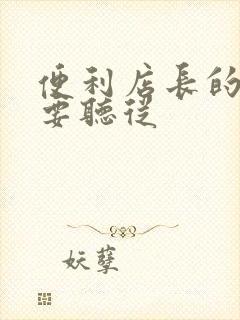 便利店長的
要聽從
妖孽